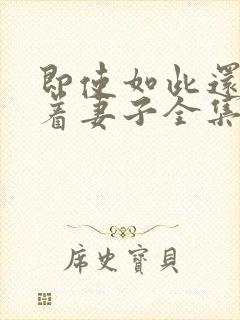 即使如此還
着妻子全集
席史寶貝